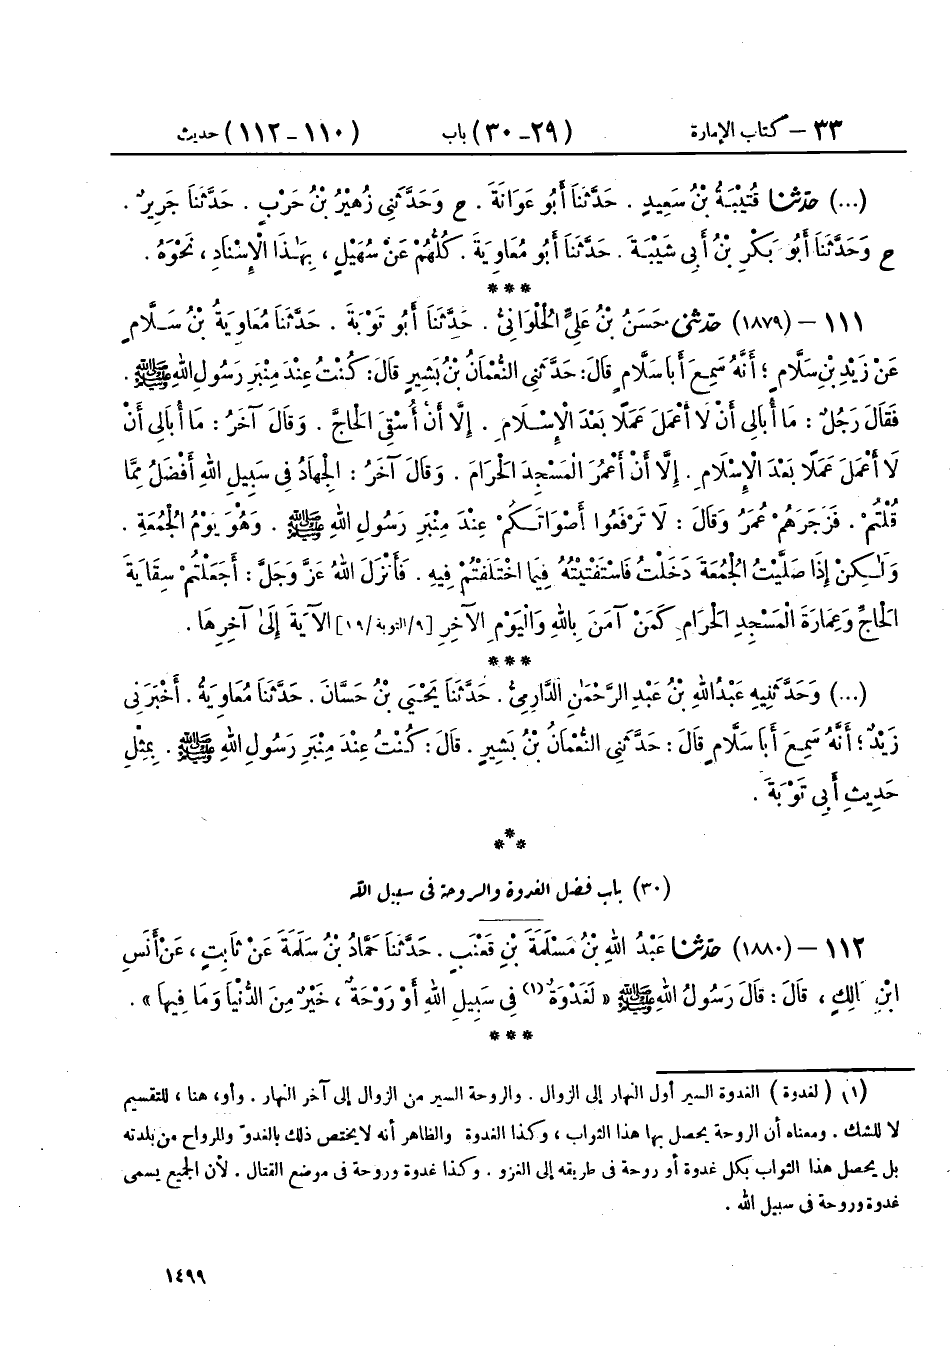 ٣٣ - كتاب الإمارة (٢٩-٣٠) باب (١١٠-١١٢) حديث
(...) حَدَّثَنَا قُتَيْبَةُ بْنُ سَعِيدٍ . حَدَّثَنَا أَبُو عَوَانَةَ . ح وَحَدَّثَنِي زُهَيْرُ بْنُ حَرْبٍ . حَدَّثَنَا جَرِيرٌ .
ح وَحَدَّثَنَا أَبُو بَكْرِ بْنُ أَبِي شَيْبَةَ . حَدَّثَنَا أَبُو مُعَاوِيَةَ . كُلُّهُمْ عَنْ سُهَيْلٍ ، بِهَذَا الْإِسْنَادِ ، نَحْوَهُ .
***
١١١ - (١٨٧٩) حَدَّثَنِي حَسَنُ بْنُ عَلِيٍّ الْحُلْوَانِيُّ . حَدَّثَنَا أَبُو تَوْبَةَ . حَدَّثَنَا مُعَاوِيَةُ بْنُ سَلَّامٍ
عَنْ زَيْدِ بْنِ سَلَّامٍ ؛ أَنَّهُ سَمِعَ أَبَا سَلَّامٍ قَالَ : حَدَّثَنِي النُّعْمَانُ بْنُ بَشِيرٍ قَالَ : كُنْتُ عِنْدَ مِنْبَرِ رَسُولِ اللهِ ﷺ .
فَقَالَ رَجُلٌ : مَا أُبَالِي أَنْ لَا أَعْمَلَ عَمَلًا بَعْدَ الْإِسْلَامِ . إِلَّا أَنْ أُسْقِيَ الْحَاجَّ . وَقَالَ آخَرُ : مَا أُبَالِي أَنْ
لَا أَعْمَلَ عَمَلًا بَعْدَ الْإِسْلَامِ . إِلَّا أَنْ أَعْمُرَ الْمَسْجِدَ الْحَرَامَ . وَقَالَ آخَرُ : الْجِهَادُ فِي سَبِيلِ اللهِ أَفْضَلُ مِمَّا
قُلْتُمْ . فَزَجَرَهُمْ عُمَرُ وَقَالَ : لَا تَرْفَعُوا أَصْوَاتَكُمْ عِنْدَ مِنْبَرِ رَسُولِ اللهِ ﷺ . وَهُوَ يَوْمُ الْجُمُعَةِ .
وَلَكِنْ إِذَا صَلَّيْتُ الْجُمُعَةَ دَخَلْتُ فَاسْتَفْتَيْتُهُ فِيمَا اخْتَلَفْتُمْ فِيهِ . فَأَنْزَلَ اللهُ عَزَّ وَجَلَّ : أَجَعَلْتُمْ سِقَايَةَ
الْحَاجِّ وَعِمَارَةَ الْمَسْجِدِ الْحَرَامِ كَمَنْ آمَنَ بِاللهِ وَالْيَوْمِ الْآخِرِ [٩/التوبة/١٩] الْآيَةَ إِلَى آخِرِهَا .
***
(...) وَحَدَّثَنِيهِ عَبْدُ اللهِ بْنُ عَبْدِ الرَّحْمَنِ الدَّارِمِيُّ . حَدَّثَنَا يَحْيَى بْنُ حَسَّانَ . حَدَّثَنَا مُعَاوِيَةُ . أَخْبَرَنِي
زَيْدٌ ؛ أَنَّهُ سَمِعَ أَبَا سَلَّامٍ قَالَ : حَدَّثَنِي النُّعْمَانُ بْنُ بَشِيرٍ . قَالَ : كُنْتُ عِنْدَ مِنْبَرِ رَسُولِ اللهِ ﷺ . بِمِثْلِ
حَدِيثِ أَبِي تَوْبَةَ .
***
(٣٠) باب فضل الغدوة والروحة فى سبيل الله
١١٢ - (١٨٨٠) حَدَّثَنَا عَبْدُ اللهِ بْنُ مَسْلَمَةَ بْنِ قَعْنَبٍ . حَدَّثَنَا حَمَّادُ بْنُ سَلَمَةَ عَنْ ثَابِتٍ ، عَنْ أَنَسِ
ابْنِ مَالِكٍ ، قَالَ : قَالَ رَسُولُ اللهِ ﷺ « لَغَدْوَةٌ (١) فِي سَبِيلِ اللهِ أَوْ رَوْحَةٌ ، خَيْرٌ مِنَ الدُّنْيَا وَمَا فِيهَا » .
***
(١) ( لغدوة ) الغدوة السير أول النهار إلى الزوال . والروحة السير من الزوال إلى آخر النهار . وأو ، هنا ، للتقسيم
لا للشك . ومعناه أن الروحة يحصل بها هذا الثواب ، وكذا الغدوة والظاهر أنه لا يختص ذلك بالغدوّ والمرواح من بلدته
بل يحصل هذا الثواب بكل غدوة أو روحة فى طريقه إلى الغزو . وكذا غدوة وروحة فى موضع القتال . لأن الجميع يسمى
غدوة وروحة فى سبيل الله .
١٤٩٩